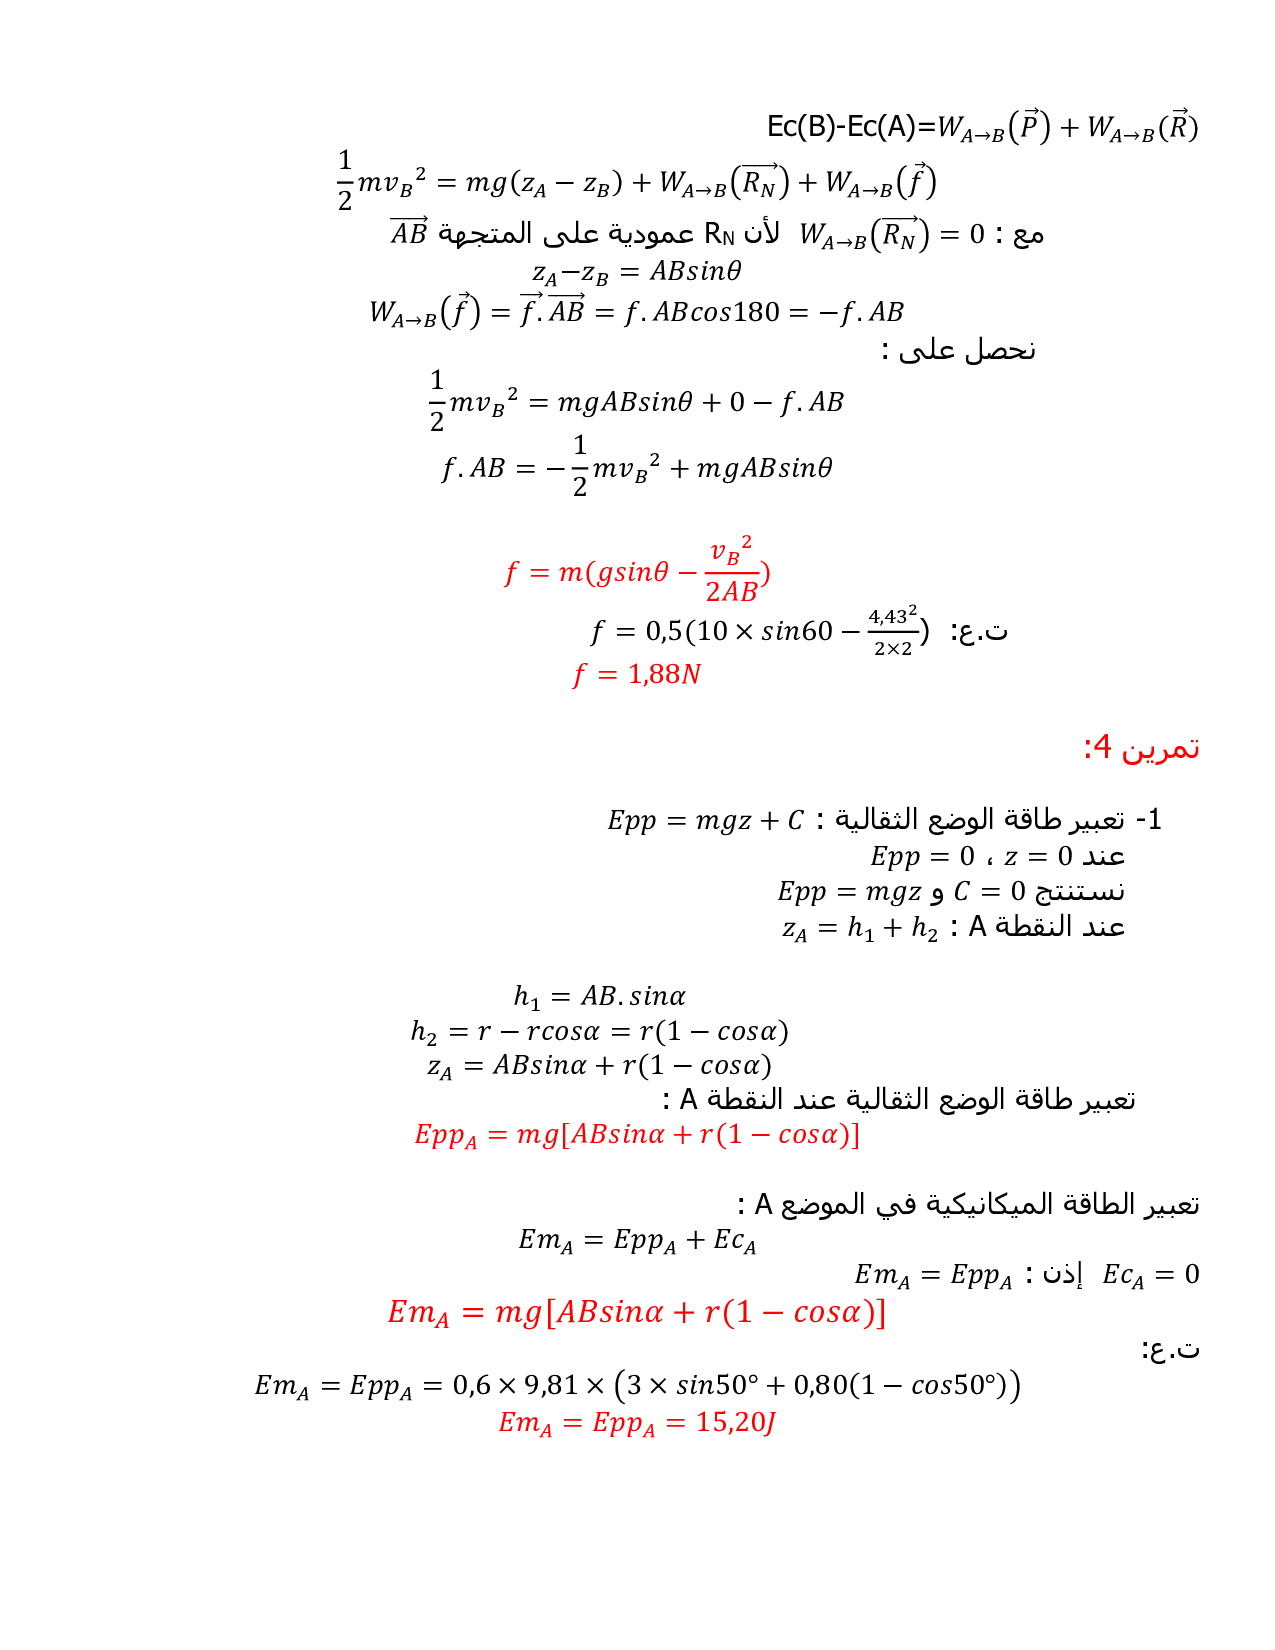 Ec(B)-Ec(A)=W_{A→B}(\vec{P}) + W_{A→B}(\vec{R})
\frac{1}{2}mv_B² = mg(z_A − z_B) + W_{A→B}(\vec{R_N}) + W_{A→B}(\vec{f})
مع : W_{A→B}(\vec{R_N}) = 0 لأن R_N عمودية على المتجهة \vec{AB}
z_A−z_B = ABsinθ
W_{A→B}(\vec{f}) = \vec{f}.\vec{AB} = f.ABcos180 = −f.AB
نحصل على :
\frac{1}{2}mv_B² = mgABsinθ + 0 − f.AB
f.AB = −\frac{1}{2}mv_B² + mgABsinθ
f = m(gsinθ − \frac{v_B²}{2AB})
ت.ع: f = 0,5(10 × sin60 − \frac{4,43²}{2×2})
f = 1,88N
تمرين 4:
1- تعبير طاقة الوضع الثقالية : Epp = mgz + C
عند z = 0 ، Epp = 0
نستنتج C = 0 و Epp = mgz
عند النقطة A : z_A = h_1 + h_2
h_1 = AB.sinα
h_2 = r − rcosα = r(1 − cosα)
z_A = ABsinα + r(1 − cosα)
تعبير طاقة الوضع الثقالية عند النقطة A :
Epp_A = mg[ABsinα + r(1 − cosα)]
تعبير الطاقة الميكانيكية في الموضع A :
Em_A = Epp_A + Ec_A
Ec_A = 0 إذن : Em_A = Epp_A
Em_A = mg[ABsinα + r(1 − cosα)]
ت.ع:
Em_A = Epp_A = 0,6 × 9,81 × (3 × sin50° + 0,80(1 − cos50°))
Em_A = Epp_A = 15,20J